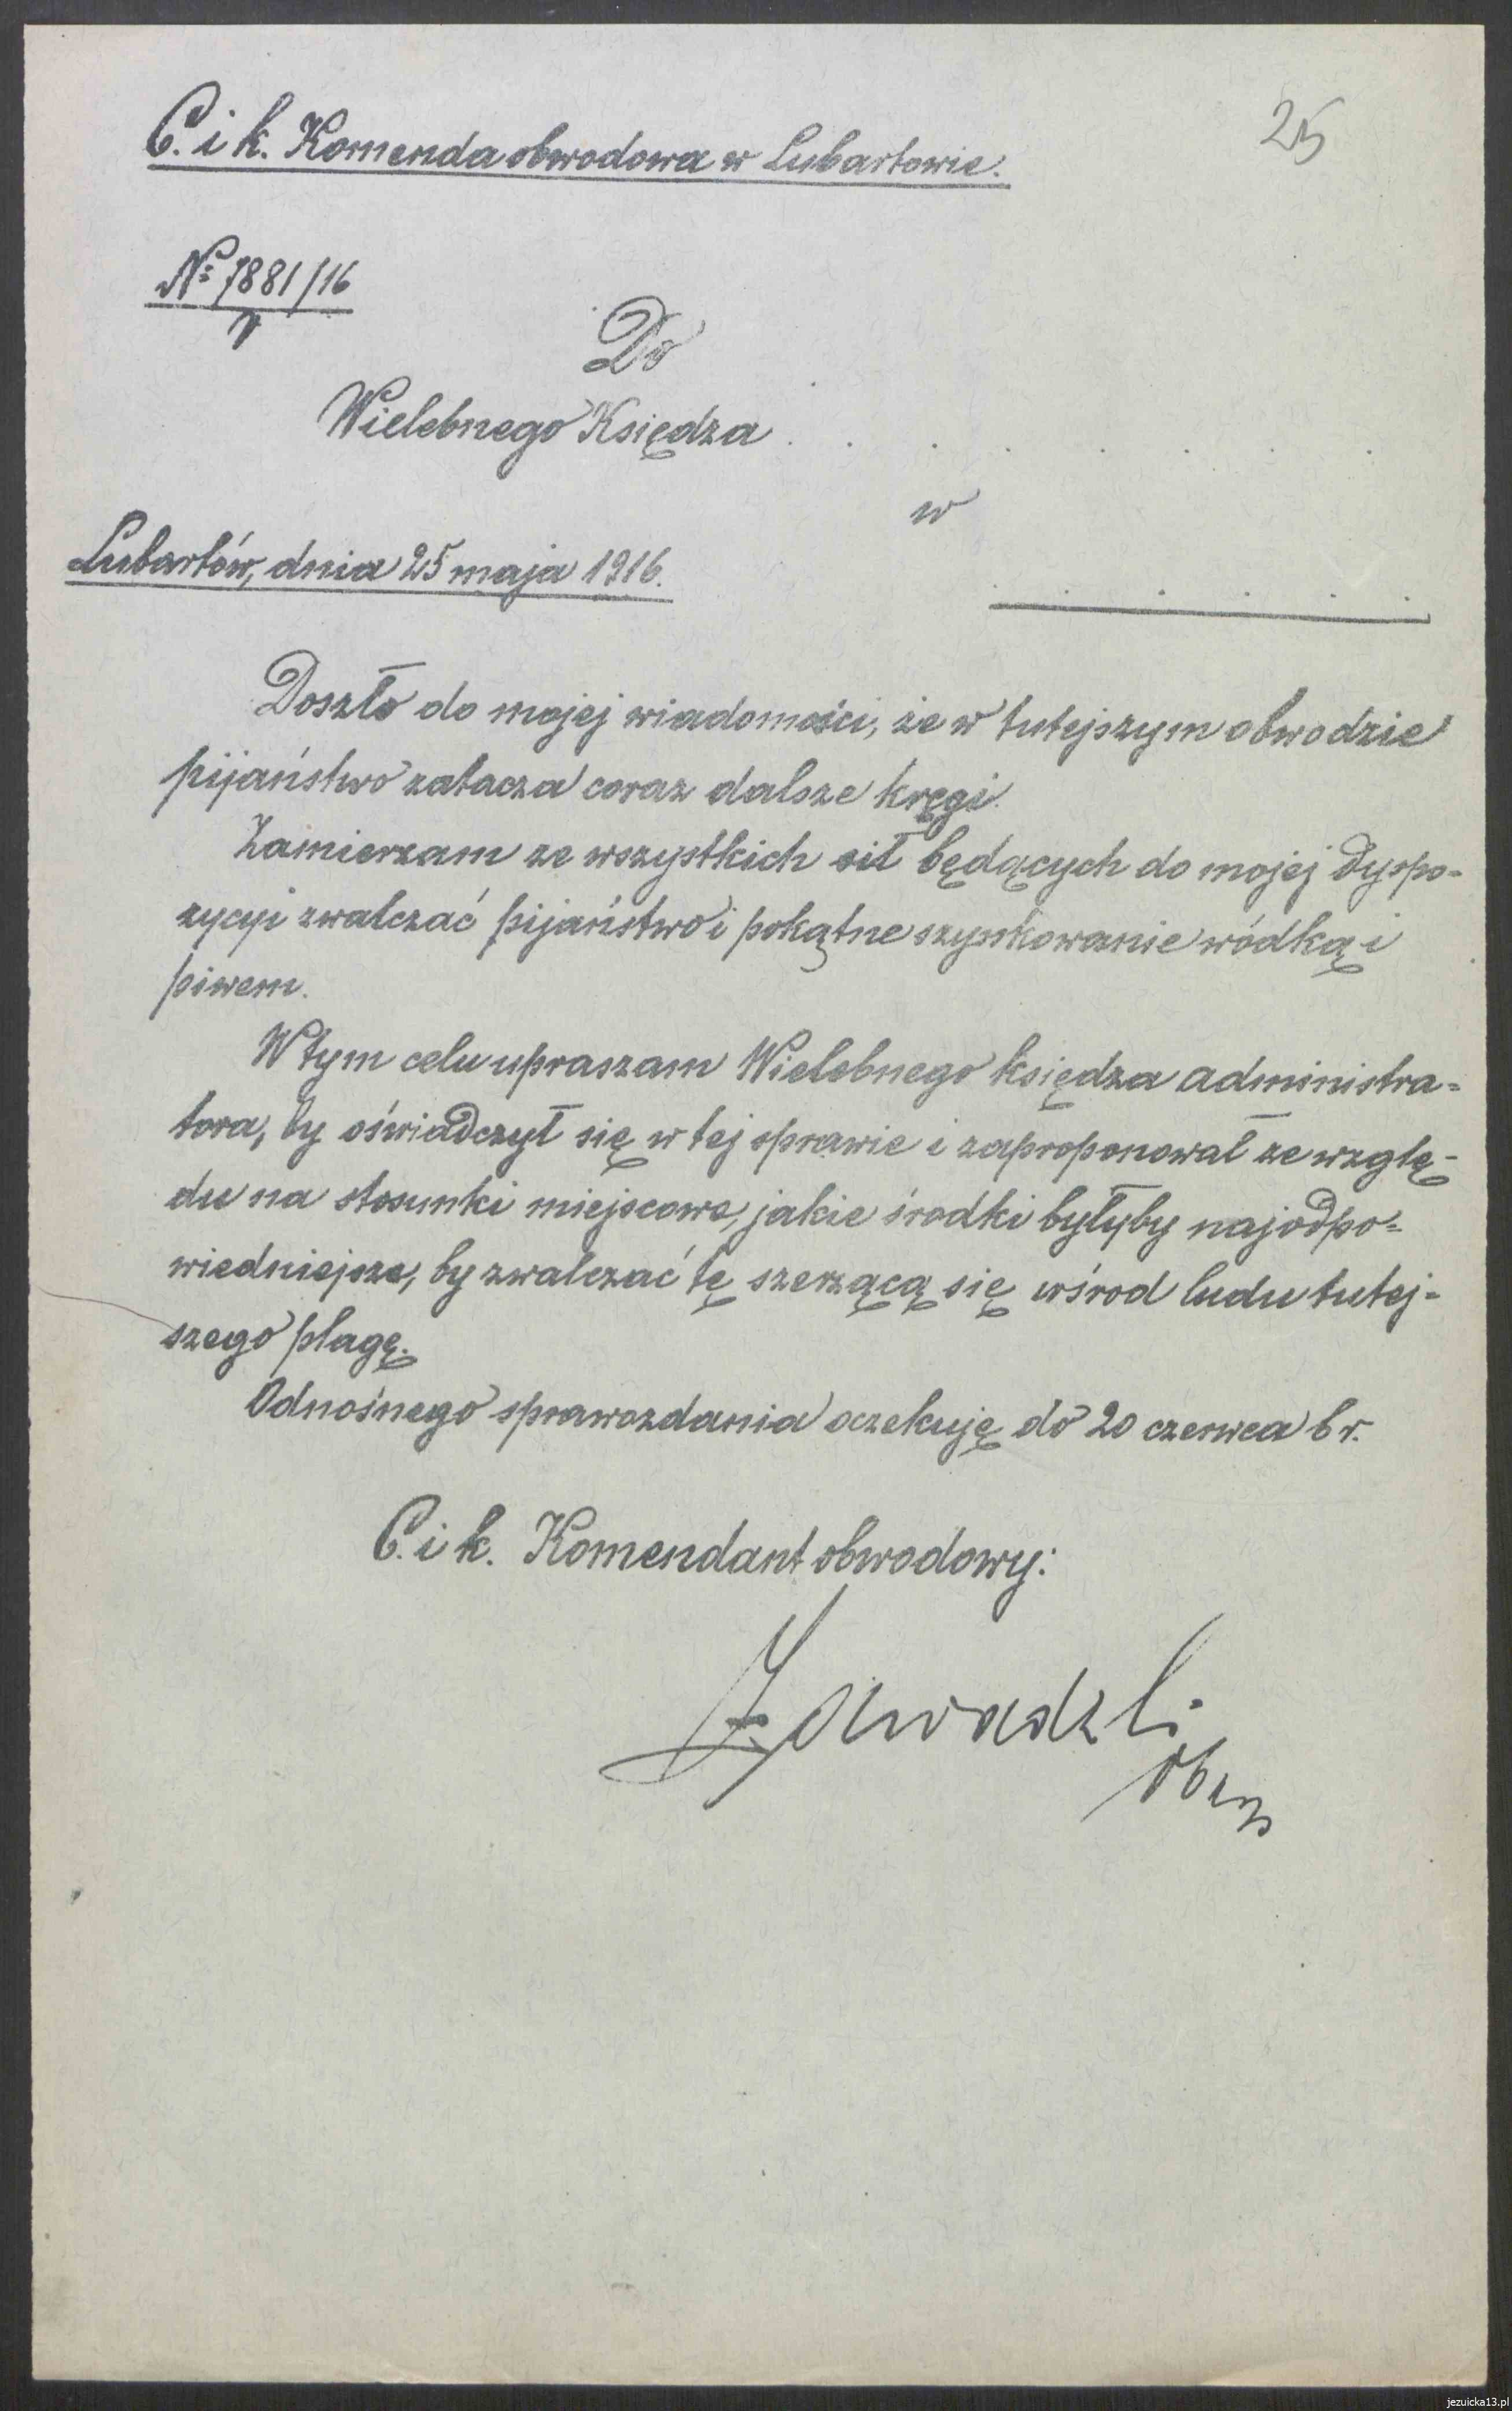 25
C. i k. Komenda obwodowa w Lubartowie.
№ 7881/16
Do
Wielebnego Księdza . . . . . . . .
w
Lubartów, dnia 25 maja 1916.
. . . . .
Doszło do mojej wiadomości, że w tutejszym obwodzie
pijaństwo zatacza coraz dalsze kręgi.
Zamierzam ze wszystkich sił będących do mojej dyspo-
zycyi zwalczać pijaństwo i pokątne szynkowanie wódką i
piwem.
W tym celu upraszam Wielebnego księdza administra-
tora, by oświadczył się w tej sprawie i zaproponował ze wzglę-
du na stosunki miejscowe, jakie środki byłyby najodpo-
wiedniejsze, by zwalczać tę szerzącą się wśrod ludu tutej-
szego plagę.
Odnośnego sprawozdania oczekuję do 20 czerwca b r.
C. i k. Komendant obwodowy:
Zawadzki
jezuicka13.pl